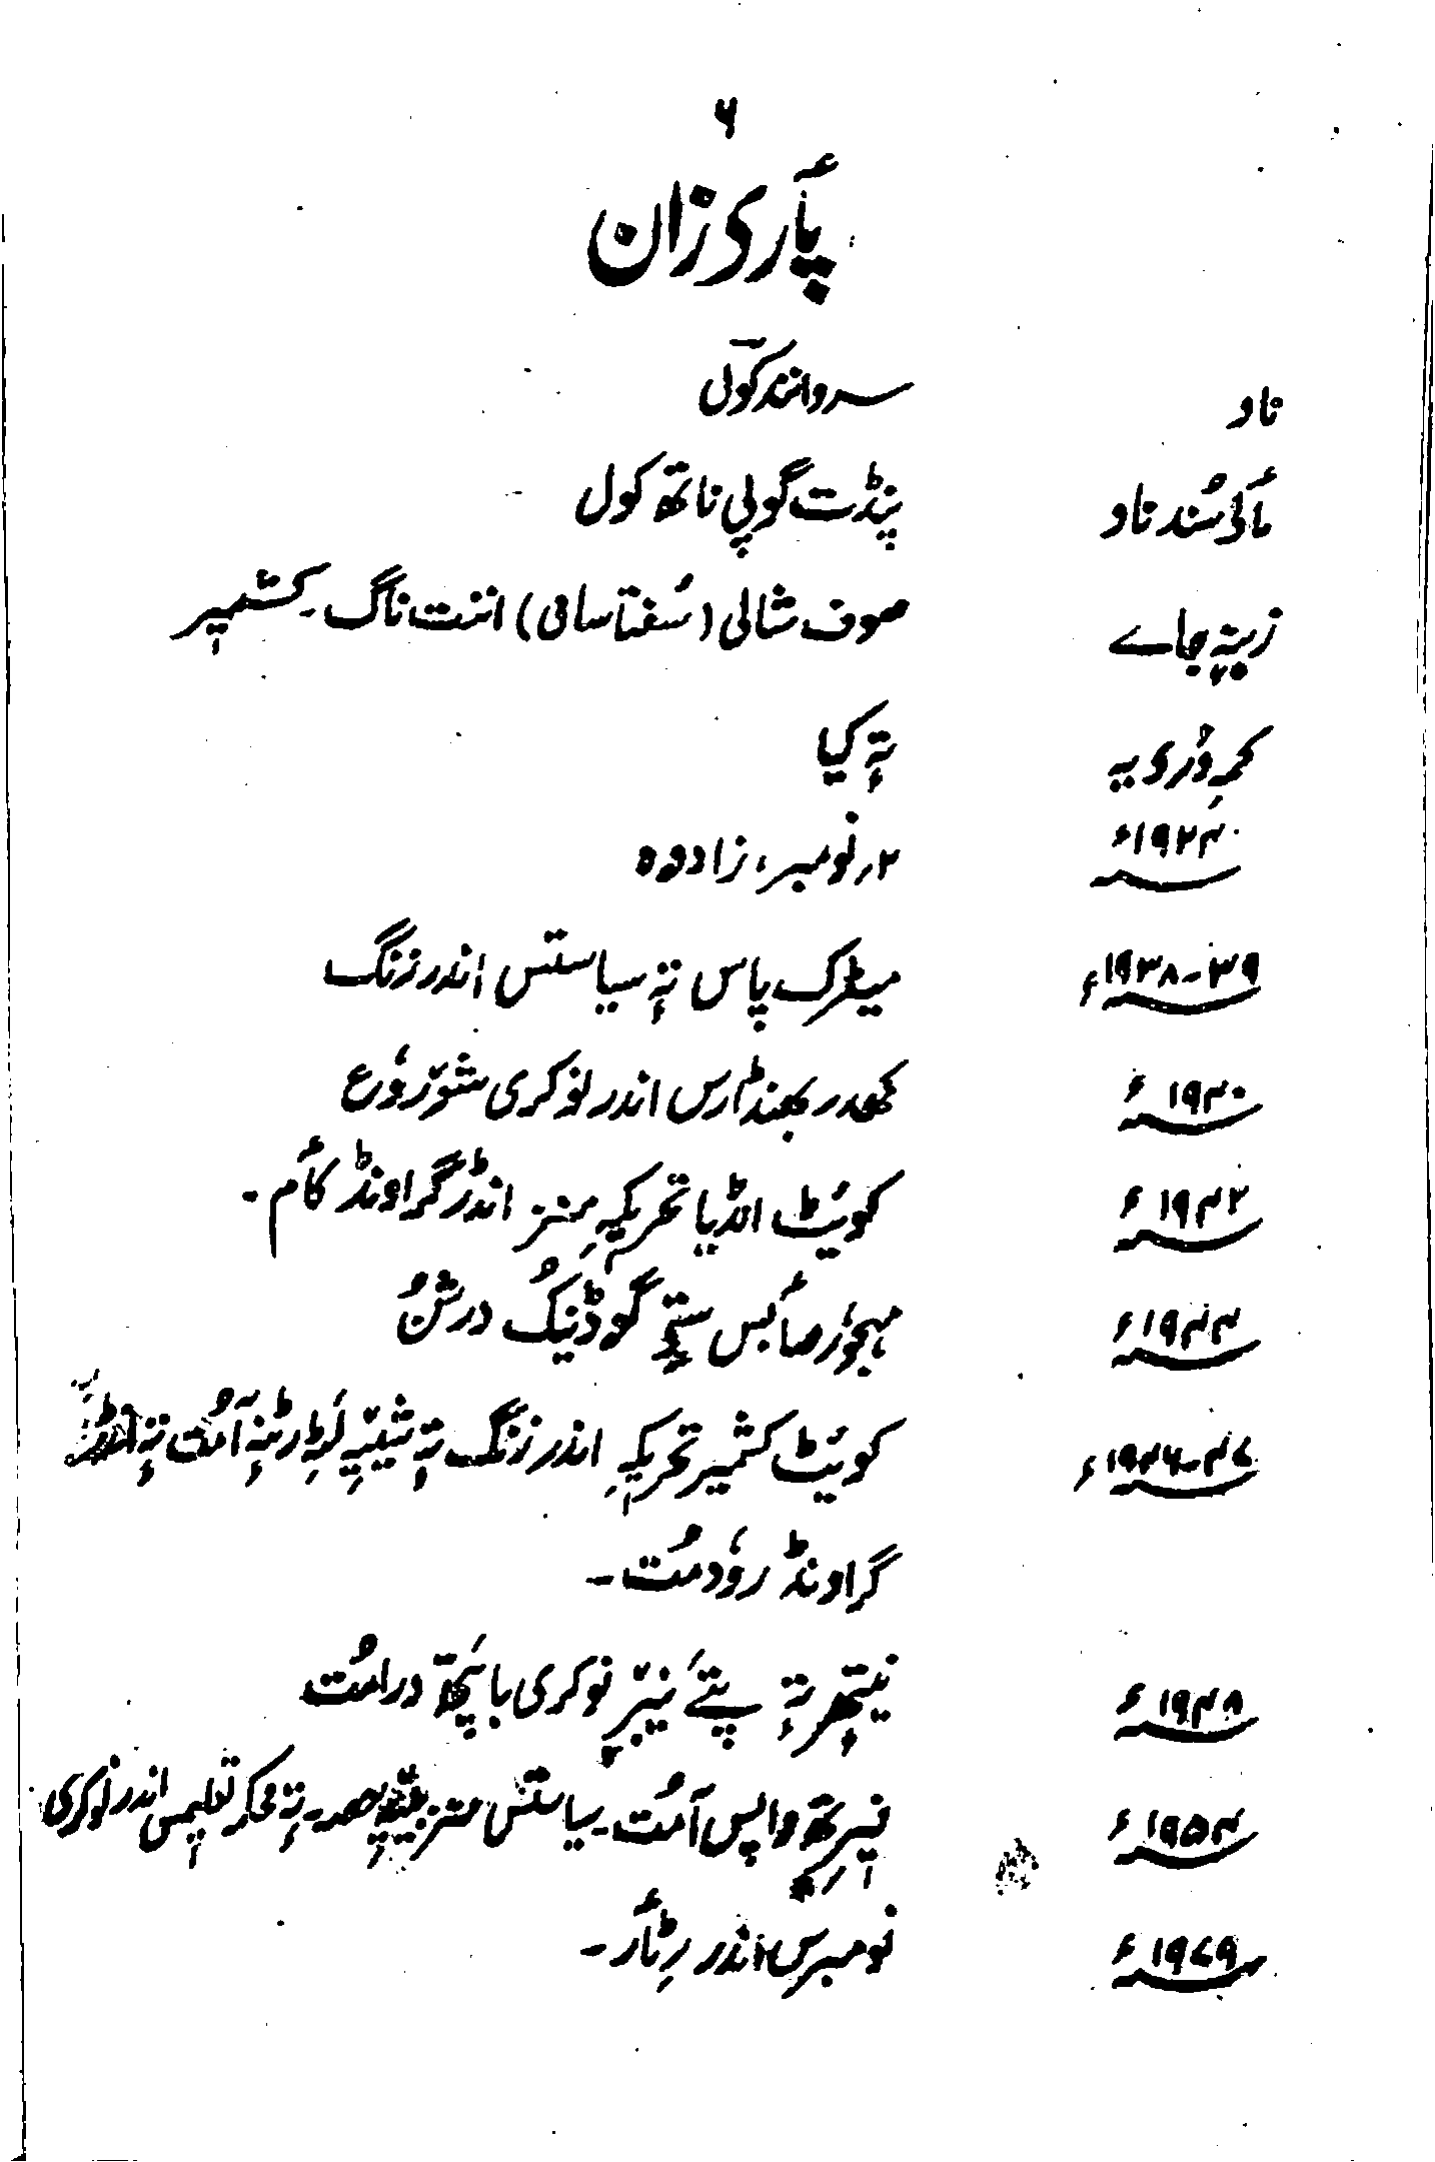 ۶
پأرۍ زان
ناو سروانند کول
مألۍ سُند ناو پنڈت گوپی ناتھ کول
زینہٕ جاے صوف شالی (سُفتا سامی) اننت ناگ۔ کشمیر
کمہِ ؤری یہ تہٕ کیا
۱۹۲۴ء ۲؍ نومبر، زادوہ
۱۹۳۸-۳۹ء میٹرک پاس تہٕ سیاستس اندر زنگ
۱۹۴۰ء کھدر بھنڈارس اندر نوکری شۆروٗع
۱۹۴۲ء کویُٹ انڈیا تحریکہِ منز انڈر گراونڈ کأم۔
۱۹۴۴ء مہجوٗر صأبس ستۍ گوڈنیُک درشُن
۱۹۴۶-۴۷ء کویُٹ کشمیر تحریکہِ اندر زنگ تہٕ شیٚیہِ لٹہِ رٹنہٕ آمُت تہٕ انڈر
گراونڈ روٗدمُت۔
۱۹۴۸ء نیتھر تہٕ پتے نیٚبر نوکری باپتھ درامُت
۱۹۵۴ء پھیرتھ واپس آمُت۔ سیاستس منز بیٚیہِ حصہ۔ تہٕ محکمہ تعلیمس اندر نوکری
۱۹۷۹ء نومبرس اندر رِٹأر۔